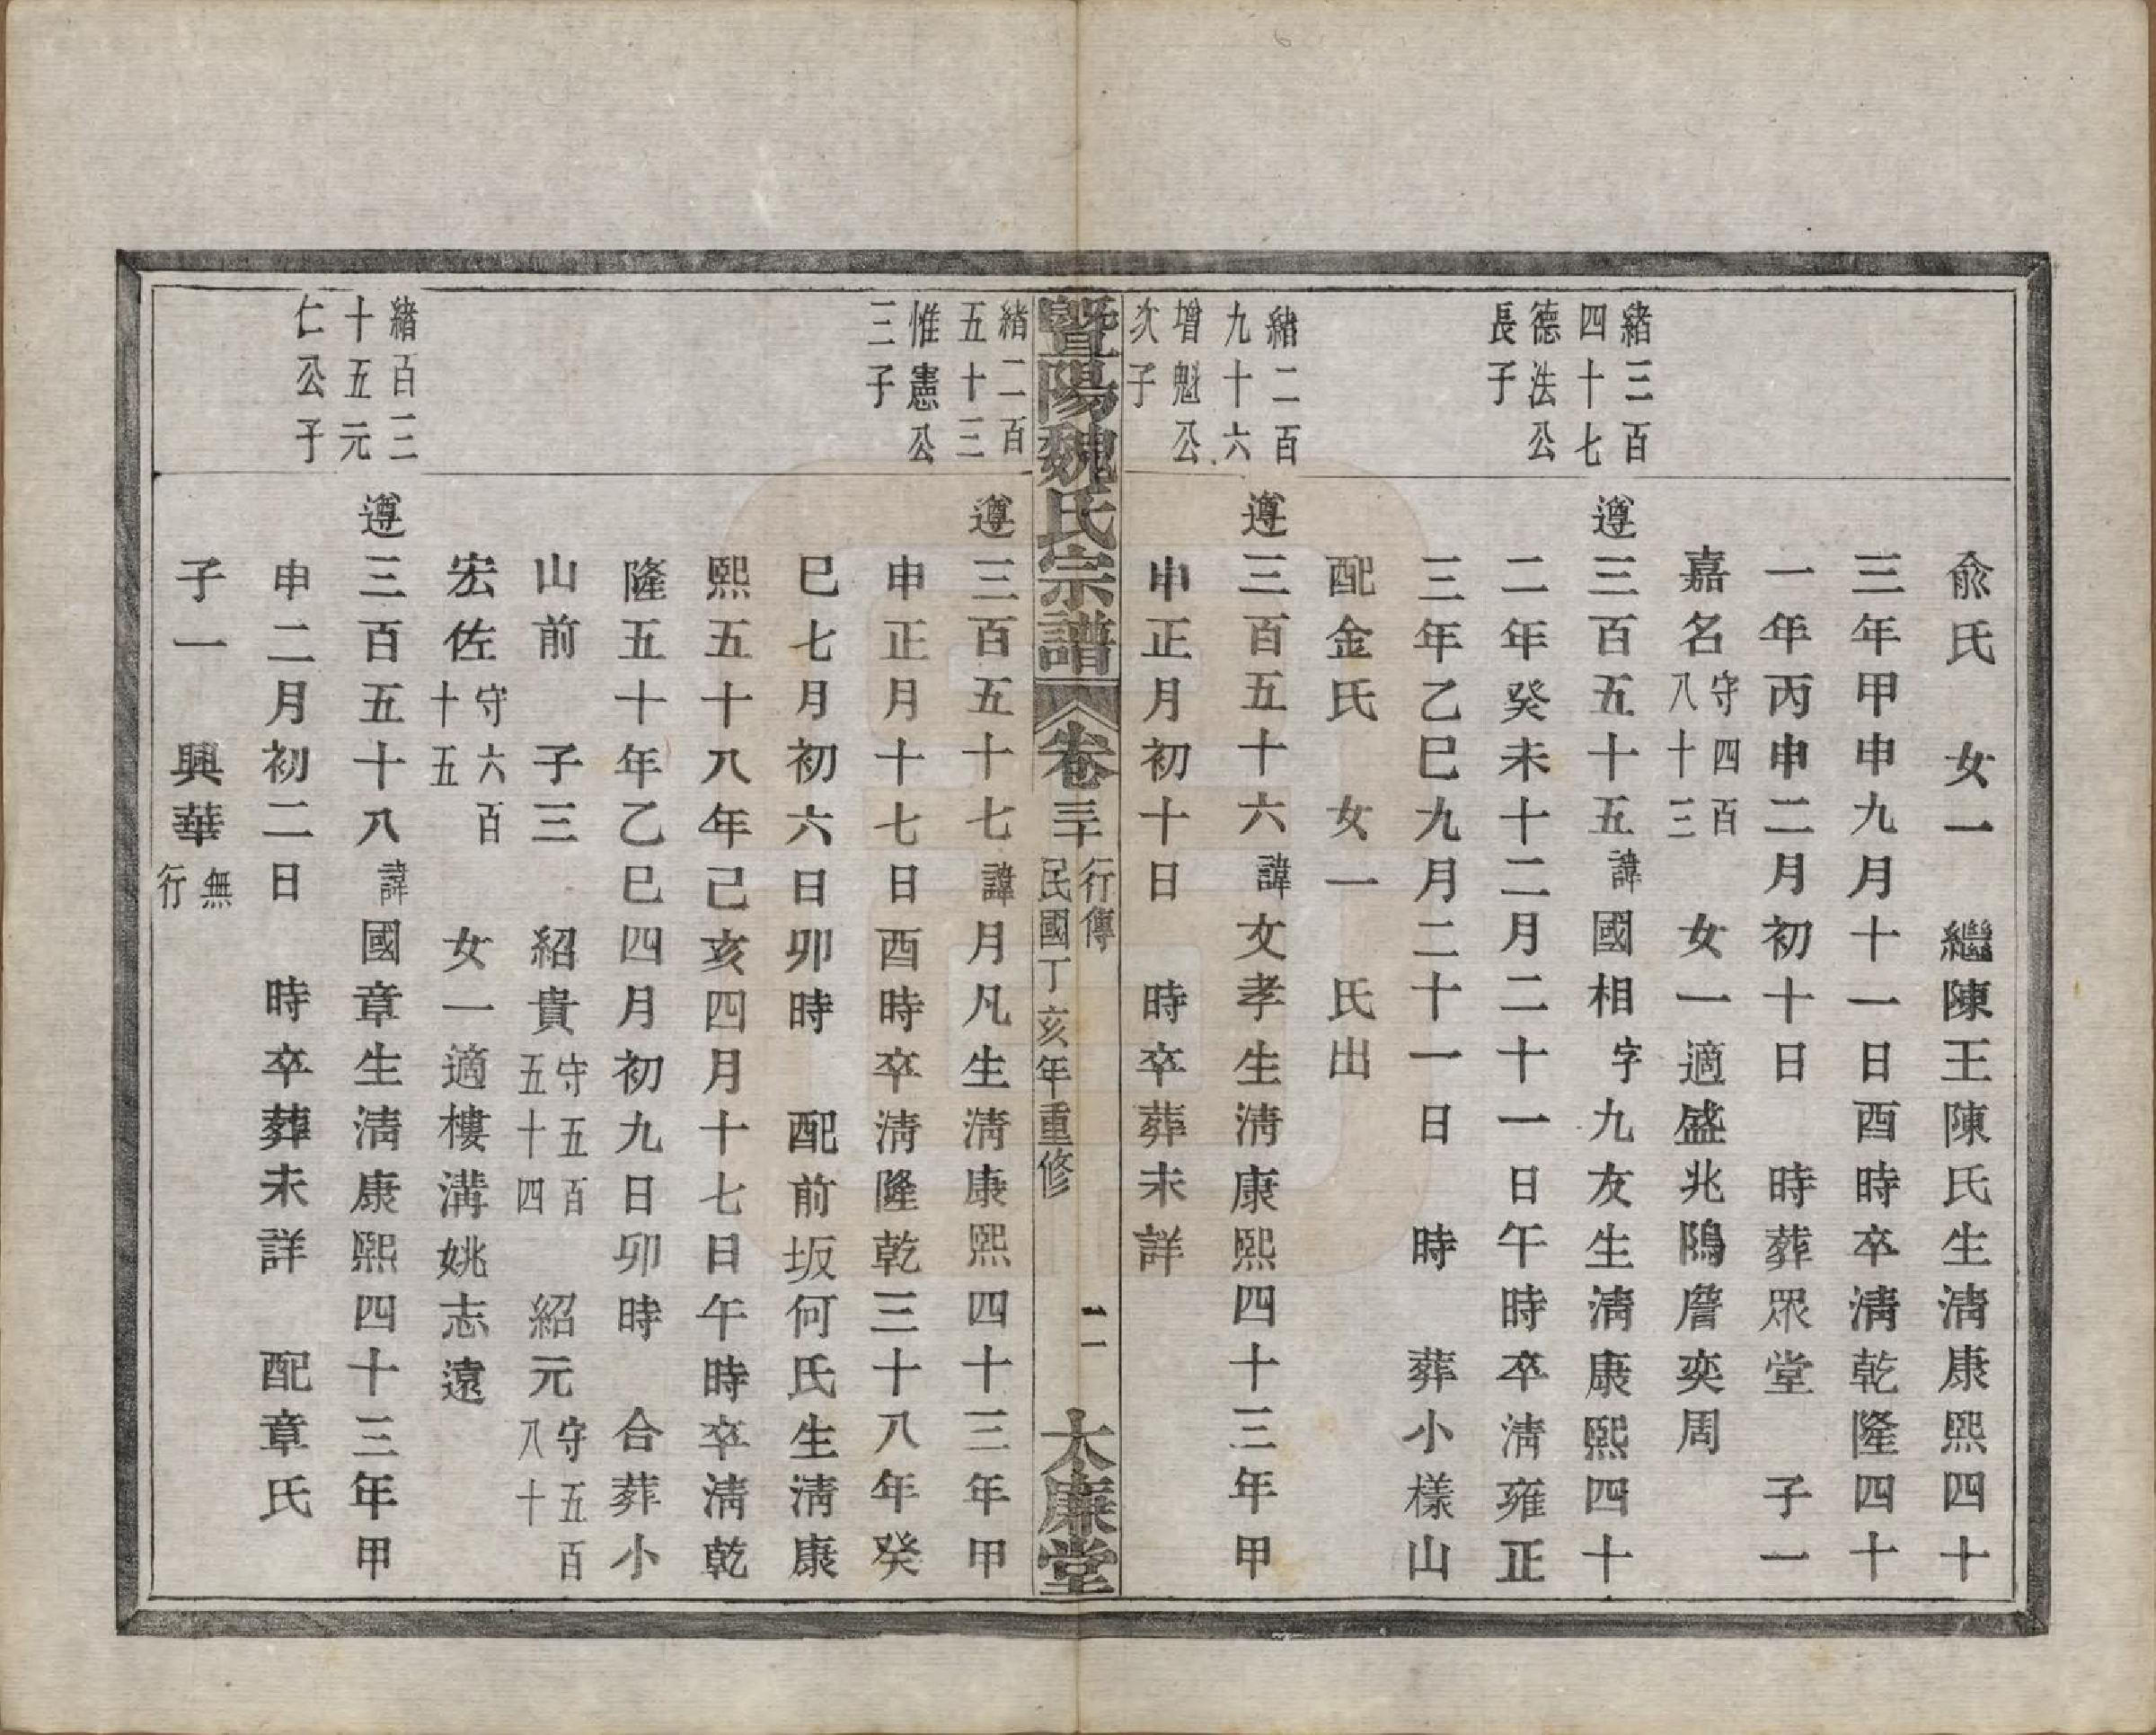 俞氏　女一　繼陳王陳氏生淸康熙四十
三年甲申九月十一日酉時卒淸乾隆四十
一年丙申二月初十日　時葬眾堂　子一
嘉名守四百八十三　女一適盛兆隖詹奕周
緒三百四十七德法公長子
遵三百五十五諱國相字九友生淸康熙四十
二年癸未十二月二十一日午時卒淸雍正
三年乙巳九月二十一日　時　葬小樣山
配金氏　女一　氏出
緒二百九十六增魁公次子
遵三百五十六諱文孝生淸康熙四十三年甲
申正月初十日　時卒葬未詳
暨陽魏氏宗譜　卷三十　行傳　民國丁亥年重修　二　大廉堂
緒二百五十三惟憲公三子
遵三百五十七諱月凡生淸康熙四十三年甲
申正月十七日酉時卒淸隆乾三十八年癸
巳七月初六日卯時　配前坂何氏生淸康
熙五十八年己亥四月十七日午時卒淸乾
隆五十年乙巳四月初九日卯時　合葬小
山前　子三　紹貴守五百五十四　紹元守五百八十
宏佐守六百十五　女一適樓溝姚志遠
緒百三十五元仁公子
遵三百五十八諱國章生淸康熙四十三年甲
申二月初二日　時卒葬未詳　配章氏
子一　興華無行